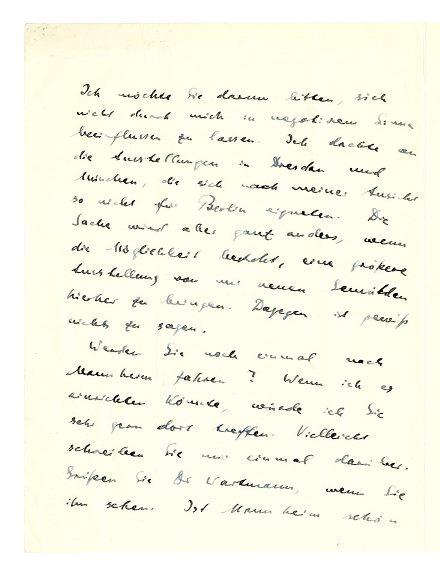 Ich möchte Sie darum bitten, sich
nicht durch mich in negativem Sinne
beeinflussen zu lassen. Ich dachte an
die Ausstellungen in Dresden und
München, die sich nach meiner Ansicht
so nicht für Berlin eigneten. Die
Sache wird aber ganz anders, wenn
die Möglichkeit besteht, eine größere
Ausstellung von mir neuen Gemälden
hierher zu bringen. Dagegen ist gewiß
nichts zu sagen.
Werden Sie noch einmal nach
Mannheim fahren? Wenn ich es
einrichten könnte, würde ich Sie
sehr gern dort treffen. Vielleicht
schreiben Sie mir einmal darüber.
Grüßen Sie Dr Wartmann, wenn Sie
ihn sehen. Ist Mannheim schön